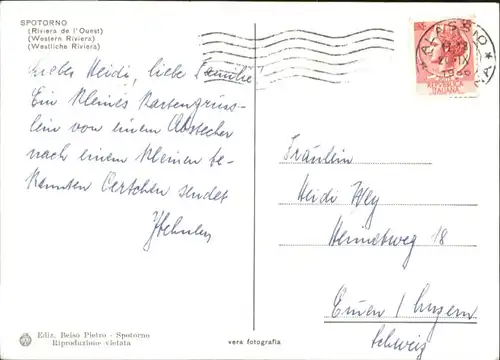 SPOTORNO
(Riviera de l'Ouest)
(Western Riviera)
(Westliche Riviera)
Liebes Heidi, liebe Familie!
Ein kleines Kartengrüss-
lein von einem Abstecher
nach einem kleinen be-
kannten Oertchen sendet
ALASSIO
1966
REPUBBLICA
ITALIANA
Fräulein
Heidi Wey
18
Emmen / Luzern
Schweiz
Ediz. Beiso Pietro - Spotorno
Riproduzione vietata
vera fotografia